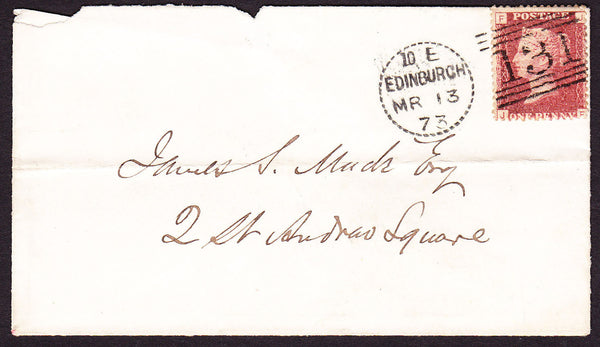 F POSTAGE J
131
J ONE PENNY F
10 E
EDINBURGH
MR 13
73
James S. Mack Esq
2 St Andrew Square